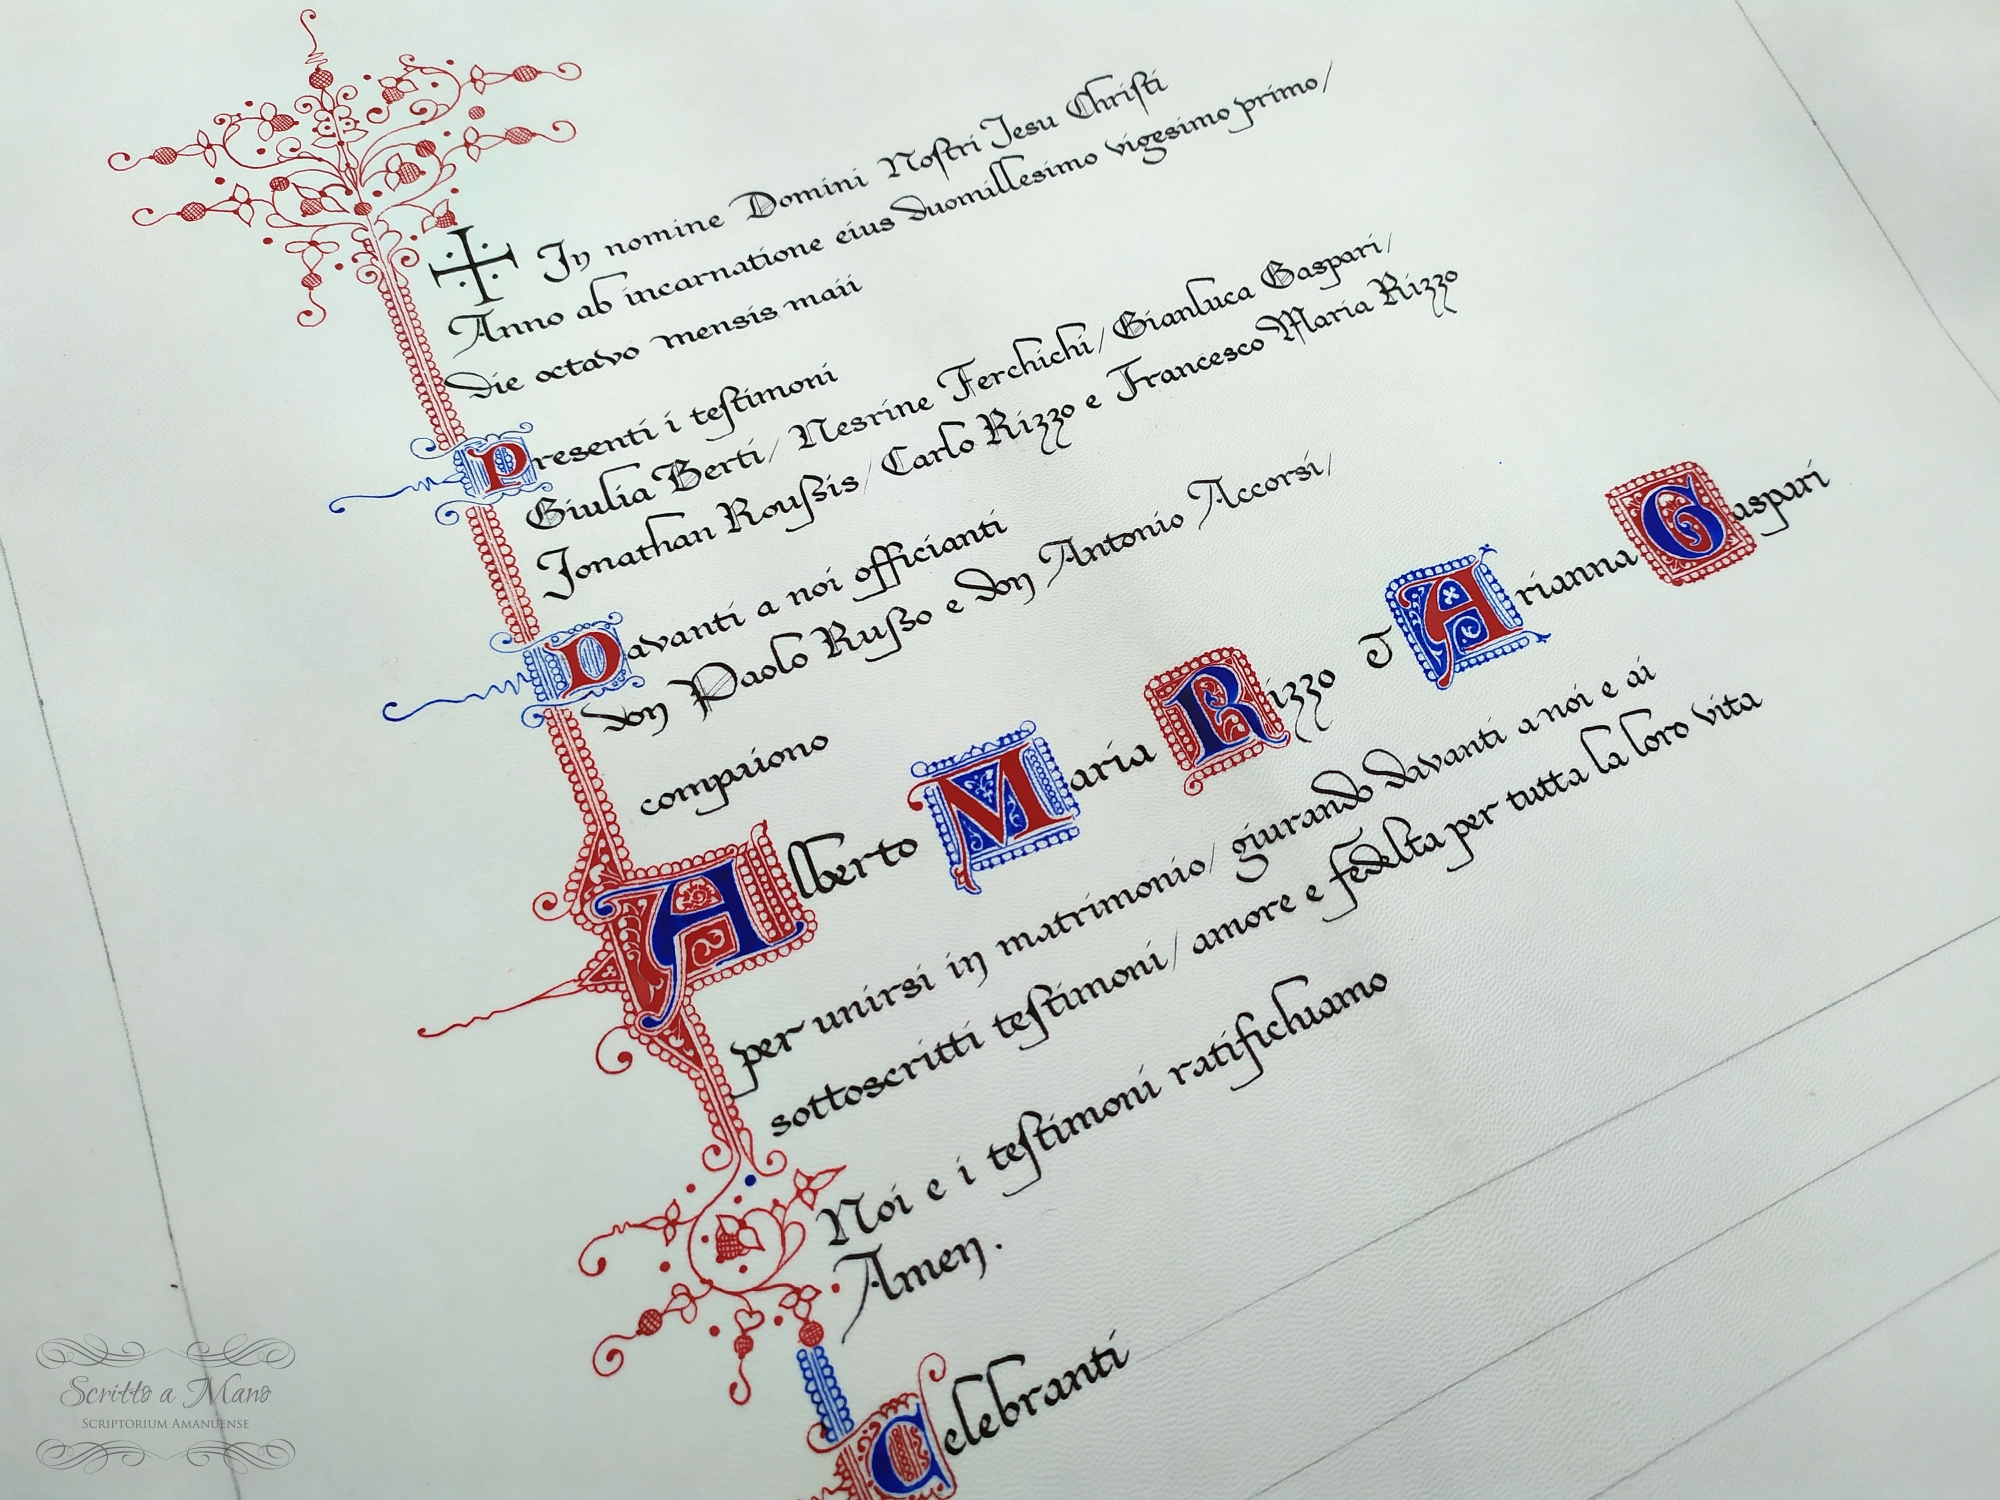 In nomine Domini Nostri Jesu Christi
Anno ab incarnatione eius duomillesimo vigesimo primo/
die octavo mensis maii
Presenti i testimoni
Giulia Berti/ Nesrine Ferchichi/ Gianluca Gaspari/
Jonathan Roussis/ Carlo Rizzo e Francesco Maria Rizzo
Davanti a noi officianti
don Paolo Russo e don Antonio Accorsi/
compaiono
Alberto Maria Rizzo & Arianna Gaspari
per unirsi in matrimonio/ giurando davanti a noi e ai
sottoscritti testimoni/ amore e fedelta per tutta la loro vita
Noi e i testimoni ratifichiamo
Amen.
Celebranti
Scritto a Mano
SCRIPTORIUM AMANUENSE